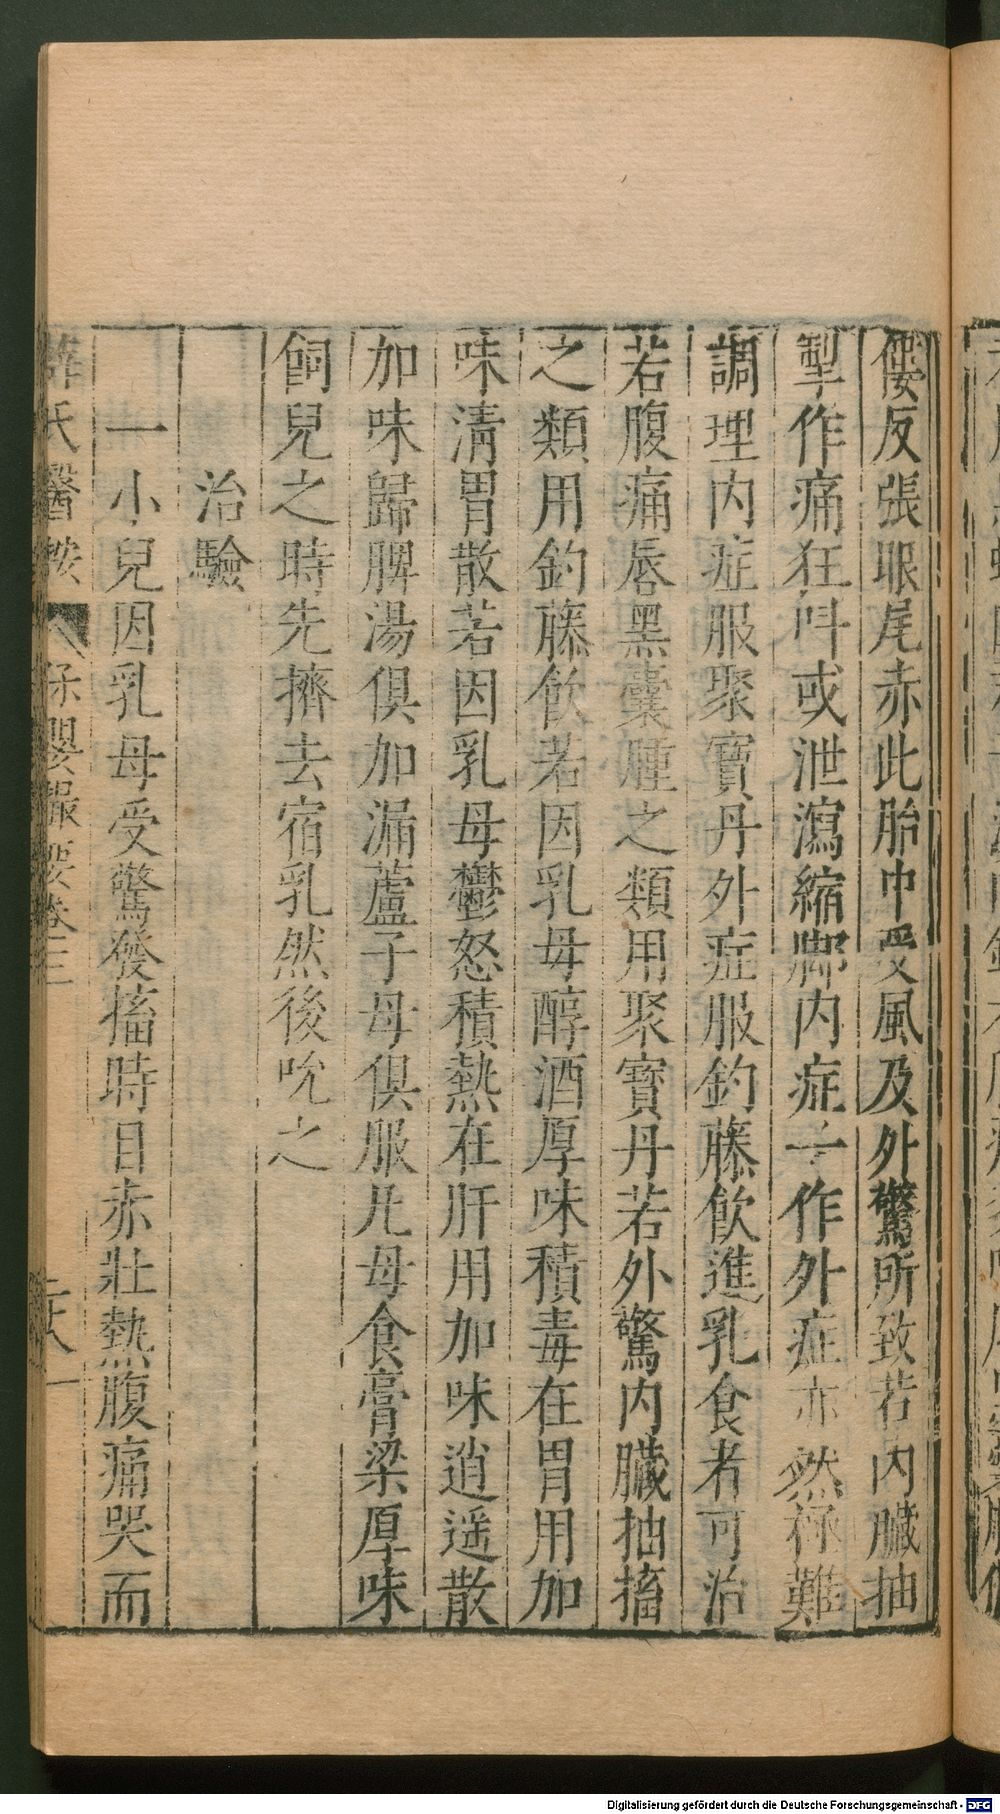 僂反張眼尾赤此胎中受風及外驚所致若內臟抽
掣作痛狂叫或泄瀉縮脚內症一作外症亦然極難
調理內症服聚寶丹外症服釣藤飲進乳食者可治
若腹痛唇黑囊腫之類用聚寶丹若外驚內臟抽搐
之類用釣藤飲若因乳母醇酒厚味積毒在胃用加
味淸胃散若因乳母鬱怒積熱在肝用加味逍遥散
加味歸脾湯俱加漏蘆子母俱服凡母食膏梁厚味
飼兒之時先擠去宿乳然後吮之
治驗
一小兒因乳母受驚發搐時目赤壯熱腹痛哭而
薛氏醫按 保嬰撮要卷三 二十八
Digitalisierung gefördert durch die Deutsche Forschungsgemeinschaft - DFG